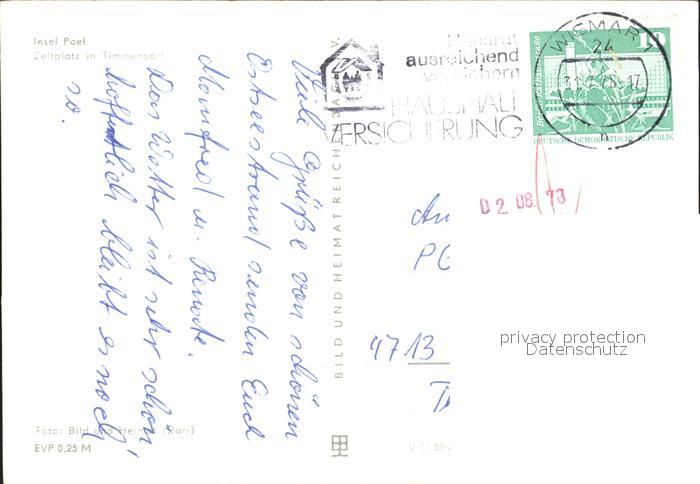 Insel Poel
Zeltplatz in Timmendorf
Viele Grüße vom schönen
Ostseestrand senden Euch
Manfred u. Renate.
Das Wetter ist sehr schön,
hoffentlich bleibt es noch
so.
Foto: Bild und Heimat (Darr)
EVP 0,25 M
BILD UND HEIMAT REICH
Hausrat
ausreichend
versichern
HAUSHALT
VERSICHERUNG
WISMAR 1
24
10
DEUTSCHE DEMOKRATISCHE REPUBLIK
02.08.73
An
PG
4713
privacy protection
Datenschutz